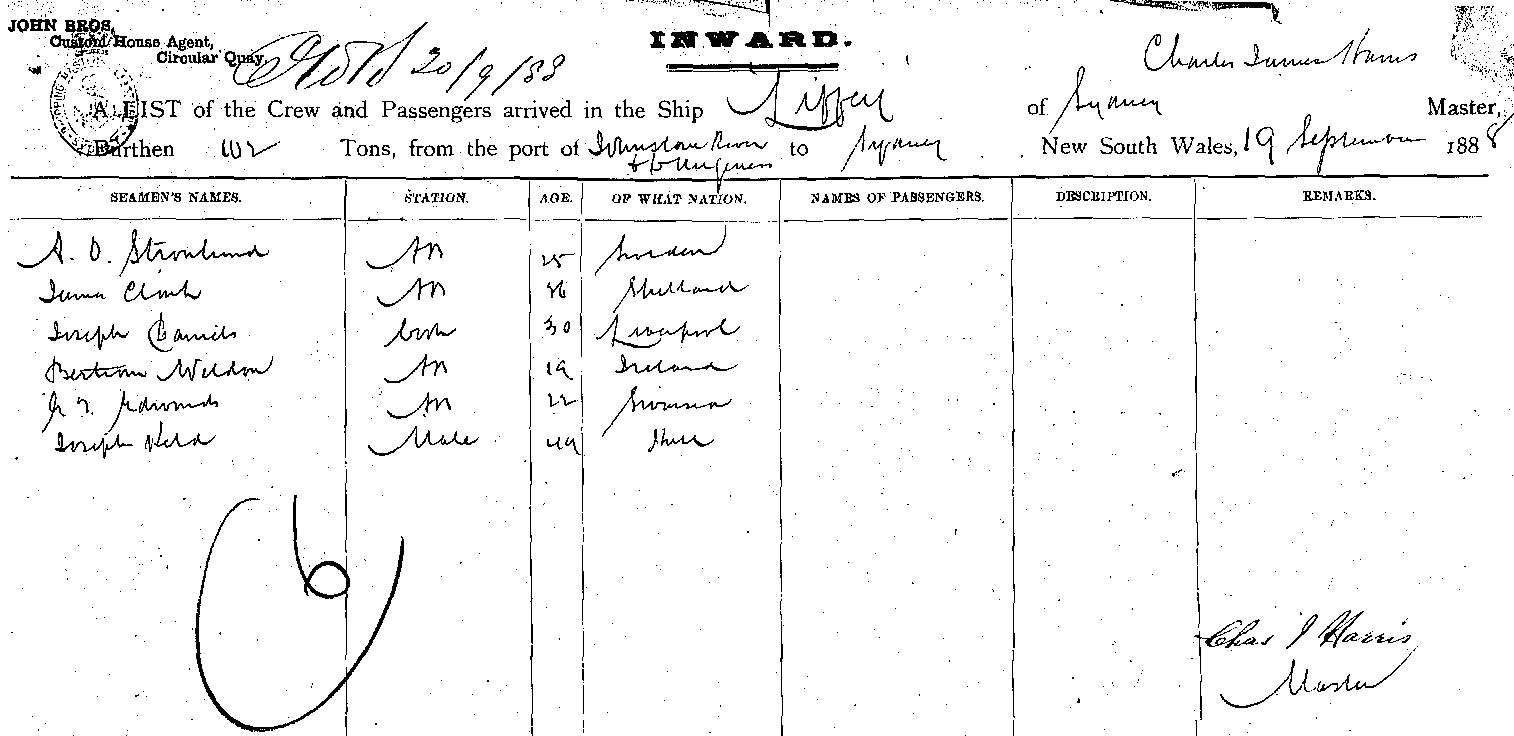 JOHN BROS,
Custom House Agent,
Circular Quay,
20/9/88
INWARD.
Charles James Harris
A LIST of the Crew and Passengers arrived in the Ship Liffey of Sydney Master,
Burthen 102 Tons, from the port of Johnston River to Sydney New South Wales, 19 September 1888
SEAMEN'S NAMES. STATION. AGE. OF WHAT NATION. NAMES OF PASSENGERS. DESCRIPTION. REMARKS.
A. O. Stromlund AB 25 Sweden
James Clark AB 36 Shetland
Joseph Daniels Cook 30 Liverpool
Bertram Weldon AB 19 Ireland
Edmunds AB 22 Swansea
Joseph Mate 49 Hull
6
Chas J Harris
Master